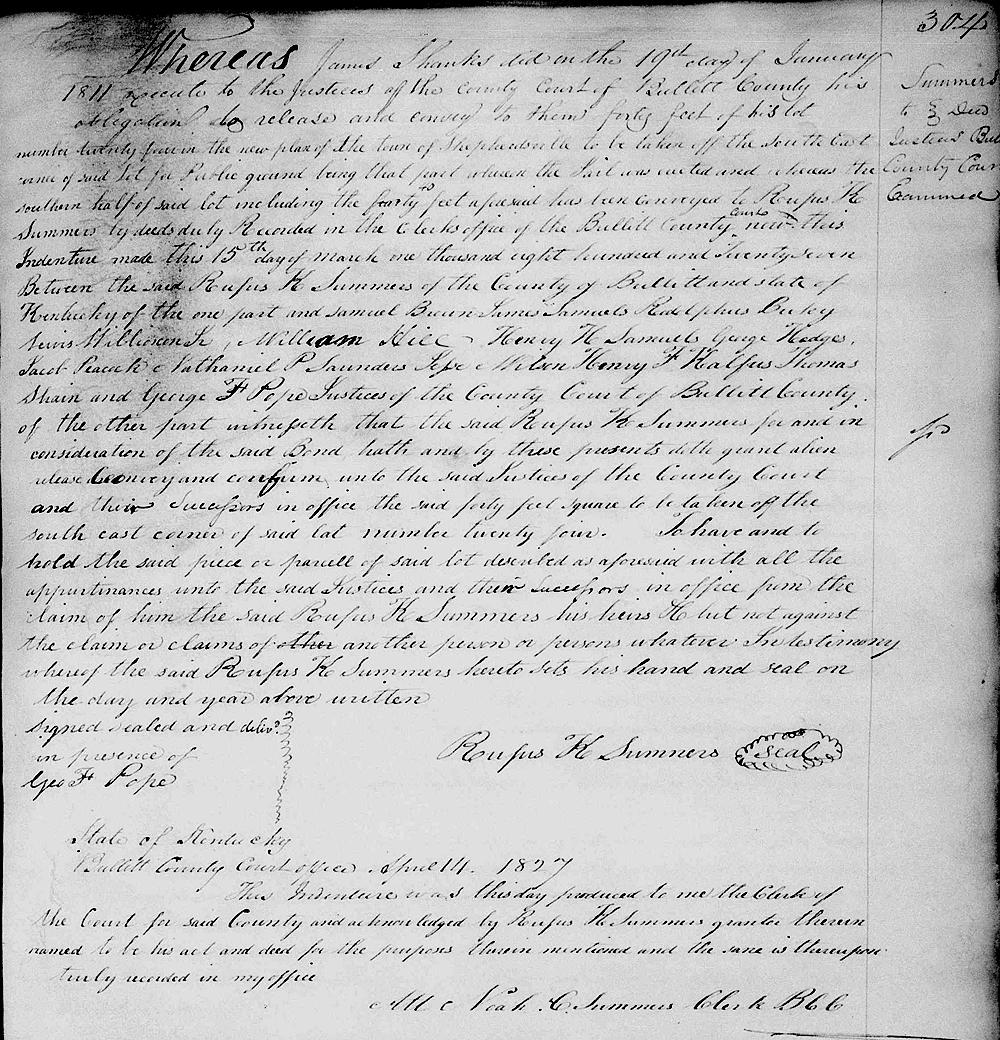 304
Whereas James Shanks did on the 19th day of January
1811 execute to the Justices of the County Court of Bullitt County his
obligation to release and convey to them forty feet of his lot
number twenty four in the new plan of the town of Shepherdsville to be taken off the South East
corner of said lot for Public ground being that part whereon the Jail was erected and whereas the
southern half of said lot including the forty feet aforesaid has been conveyed to Rufus K
Summers by deeds duly Recorded in the Clerks office of the Bullitt County Court now this
Indenture made this 15th day of march one thousand eight hundred and Twenty Seven
Between the said Rufus K Summers of the County of Bullitt and state of
Kentucky of the one part and Samuel James Samuels
William Hill Henry H Samuels George Hodges,
Jacob Peacock Nathaniel P Saunders Jesse Wilson Henry F Kalfus Thomas
Shain and George F Pope Justices of the County Court of Bullitt County
of the other part witnesseth that the said Rufus K Summers for and in
consideration of the said Bond hath and by these presents doth grant alien
release Convey and confirm unto the said Justices of the County Court
and their Successors in office the said forty feet square to be taken off the
south east corner of said lot number twenty four. To have and to
hold the said piece or parcell of said lot described as aforesaid with all the
appurtinances unto the said Justices and their Successors in office from the
claim of him the said Rufus K Summers his heirs but not against
the claim or claims of other another person or persons whatever In testimony
whereof the said Rufus K Summers hereto sets his hand and seal on
the day and year above written
signed sealed and delivd
in presence of
Geo F Pope
Rufus K Summers seal
State of Kentucky
Bullitt County Court office April 14. 1827
This Indenture was this day produced to me the Clerk of
the Court for said County and acknowledged by Rufus K Summers grantor therein
named to be his act and deed for the purposes therein mentioned and the same is thereupon
truly recorded in my office
Att Noah C Summers Clerk B C C
Summers
to Deed
Justices Bul
County Cour
Examined